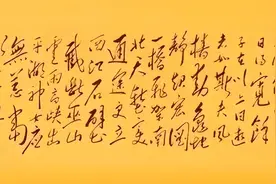 日得寬餘
子在川上曰逝
者如斯夫风
樯動龜蛇
静起宏圖
一橋飛架南
北天塹变
通途更立
西江石壁
截断巫山
雲雨高峡出
平湖神女应
無恙當